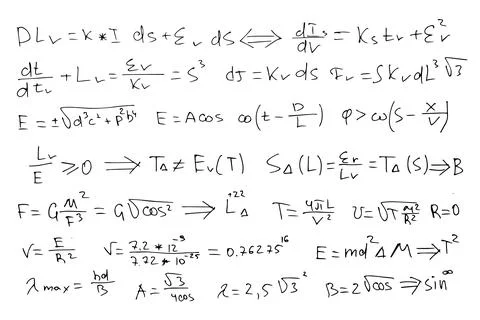 DLν = K * I ds + Eν ds ⟺ dIs/dν = Ks tν + Eν²
dt/dtν + Lν = Eν/Kν = S³ dJ = Kν ds Iν = SKν dL³ √3
E = ±√d³c² + p²b⁴ E = A cos ω(t − D/L) φ > ω(S − X/V)
Lν/E ≥ 0 ⟹ TΔ ≠ Eν(T) SΔ(L) = Er/Lν = TΔ(S) ⇒ B
F = G M²/F³ = G√cos² ⟹ LΔ⁺²² T = 4πL/V² R = 0
V = E/R² V = 7.2 * 12⁻⁹/7.72 * 10⁻²⁵ = 0.76275¹⁶ E = md² Δ M ⇒ T²
λmax = hd/B A = √3/4cos λ = 2,5 √3² B = 2√cos ⇒ sin∞